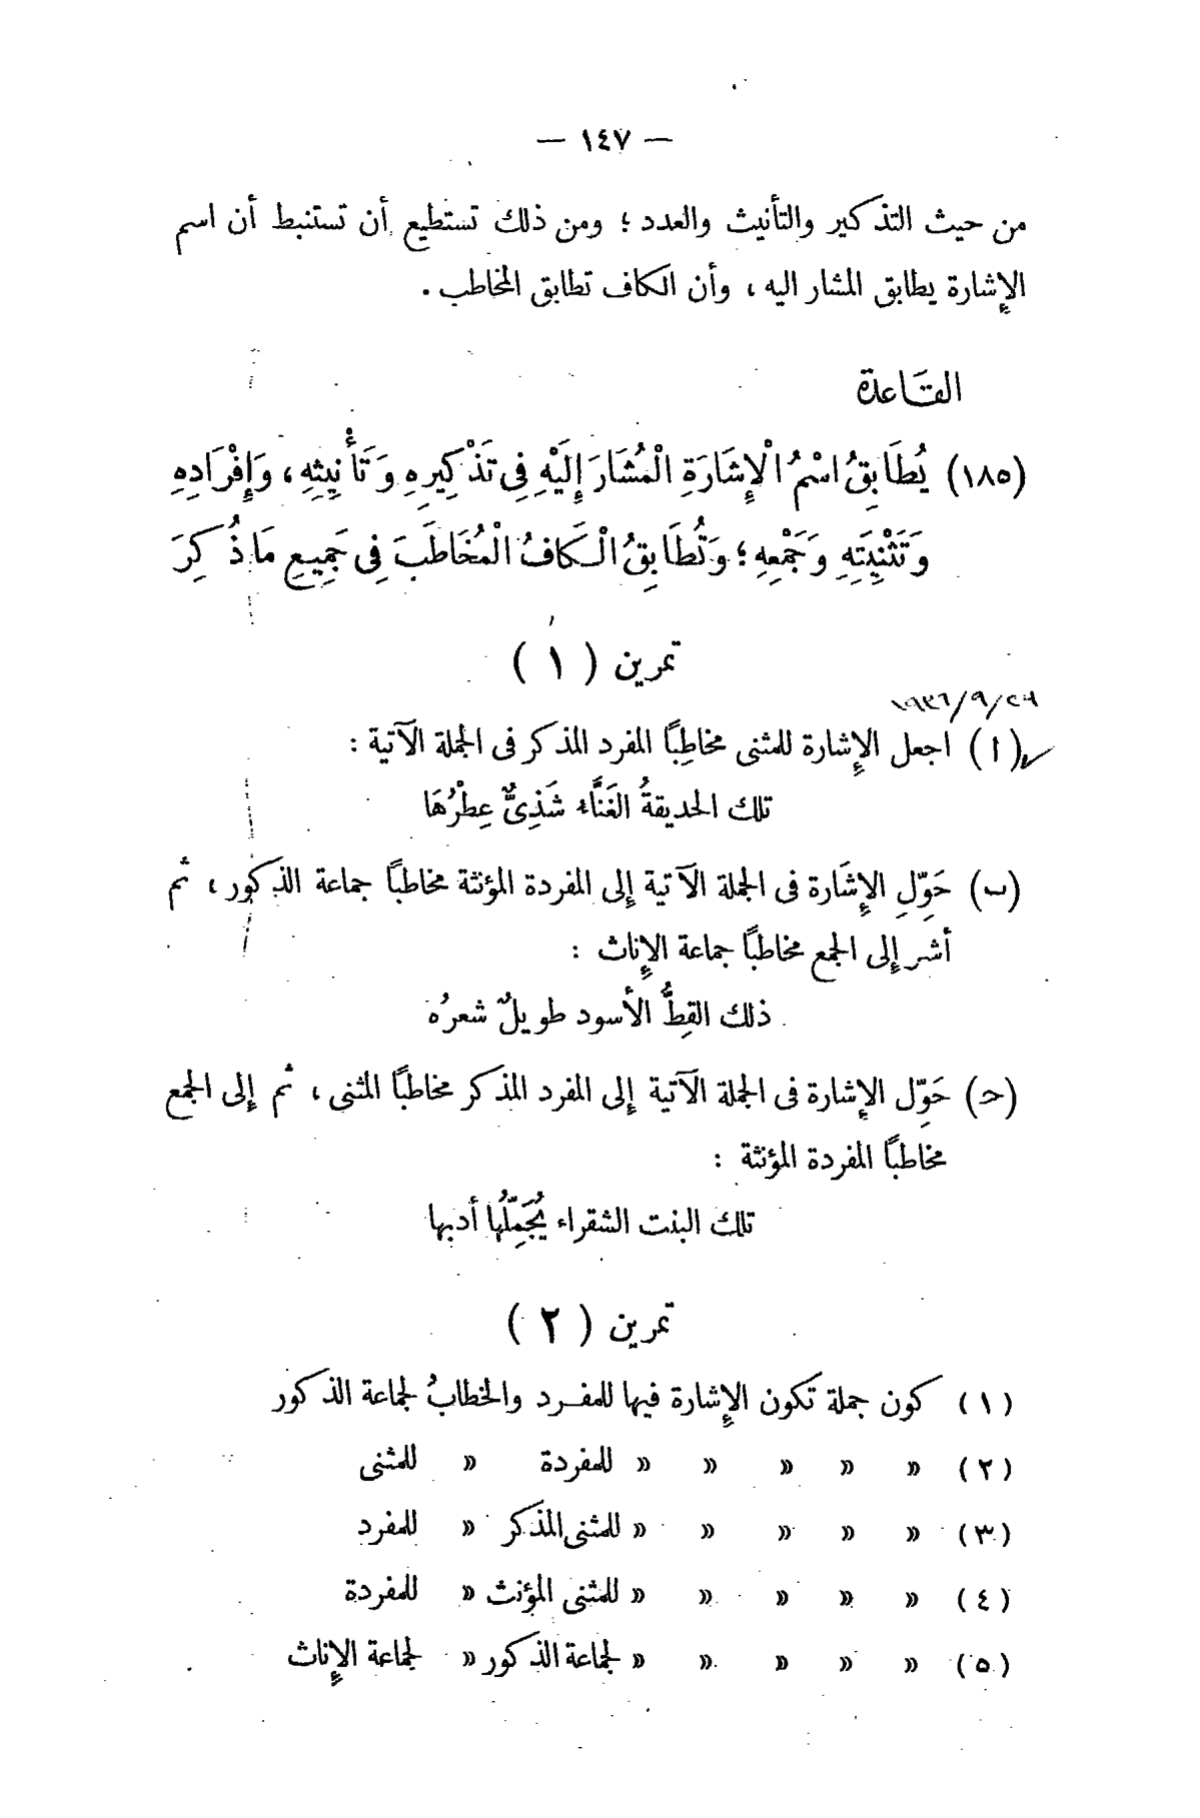 — ١٤٧ —
من حيث التذكير والتأنيث والعدد ؛ ومن ذلك تستطيع أن تستنبط أن اسم
الإشارة يطابق المشار اليه ، وأن الكاف تطابق المخاطب .
القاعدة
(١٨٥) يُطَابِقُ اسْمُ الْإِشَارَةِ الْمُشَارَ إِلَيْهِ فِى تَذْكِيرِهِ وَتَأْنِيثِهِ ، وَإِفْرَادِهِ
وَتَثْنِيَتِهِ وَجَمْعِهِ ؛ وَتُطَابِقُ الْكَافُ الْمُخَاطَبَ فِى جَمِيعِ مَا ذُكِرَ
تمرين ( ١ )
(ا) اجعل الإشارة للمثنى مخاطِبًا المفرد المذكر فى الجملة الآتية :
تلك الحديقةُ الغَنَّاء شَذِىٌّ عِطْرُهَا
(ب) حَوِّلِ الإِشَارة فى الجملة الآتية إلى المفردة المؤنثة مخاطبًا جماعة الذكور ، ثم
أشر إلى الجمع مخاطبًا جماعة الإناث :
ذلك القِطُّ الأسود طويلٌ شعرُه
(ح) حَوِّل الإشارة فى الجملة الآتية إلى المفرد المذكر مخاطبًا المثنى ، ثم إلى الجمع
مخاطبًا المفردة المؤنثة :
تلك البنت الشقراء يُجَمِّلُها أدبها
تمرين ( ٢ )
(١) كون جملة تكون الإشارة فيها للمفرد والخطابُ لجماعة الذكور
(٢) » » » » » للمفردة » للمثنى
(٣) » » » » » للمثنى المذكر » للمفرد
(٤) » » » » » للمثنى المؤنث » للمفردة
(٥) » » » » » لجماعة الذكور » لجماعة الإناث